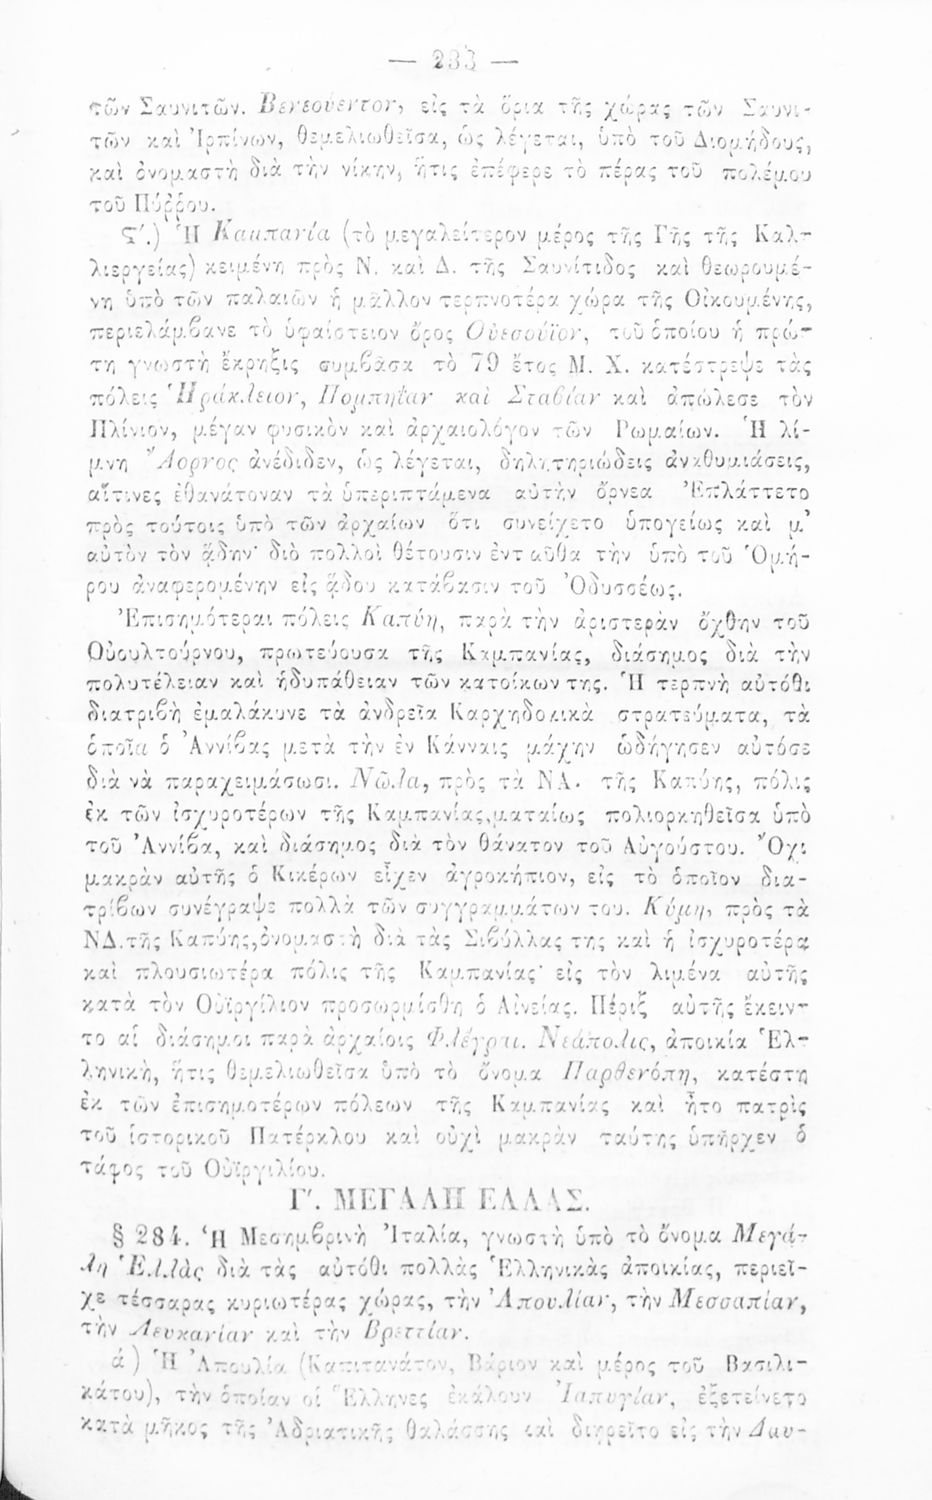 — 233 —
τῶν Σαυνιτῶν. Βενεούεντον, εἰς τὰ ὅρια τῆς χώρας τῶν Σαυνι-
τῶν καὶ Ἰρπίνων, θεμελιωθεῖσα, ὡς λέγεται, ὑπὸ τοῦ Διομήδους,
καὶ ὀνομαστὴ διὰ τὴν νίκην, ἥτις ἐπέφερε τὸ πέρας τοῦ πολέμου
τοῦ Πύῤῥου.
Ϛ΄.) Ἡ Καμπανία (τὸ μεγαλείτερον μέρος τῆς Γῆς τῆς Καλ-
λιεργείας) κειμένη πρὸς Ν. καὶ Δ. τῆς Σαυνίτιδος καὶ θεωρουμέ-
νη ὑπὸ τῶν παλαιῶν ἡ μᾶλλον τερπνοτέρα χώρα τῆς Οἰκουμένης,
περιελάμβανε τὸ ὑφαίστειον ὄρος Οὐεσούϊον, τοῦ ὁποίου ἡ πρώ-
τη γνωστὴ ἔκρηξις συμβᾶσα τὸ 79 ἔτος Μ. Χ. κατέστρεψε τὰς
πόλεις Ἡράκλειον, Πομπηΐαν καὶ Σταβίαν καὶ ἀπώλεσε τὸν
Πλίνιον, μέγαν φυσικὸν καὶ ἀρχαιολόγον τῶν Ρωμαίων. Ἡ λί-
μνη Ἄορνος ἀνέδιδεν, ὡς λέγεται, δηλητηριώδεις ἀναθυμιάσεις,
αἵτινες ἐθανάτοναν τὰ ὑπεριπτάμενα αὐτὴν ὄρνεα Ἐπλάττετο
πρὸς τούτοις ὑπὸ τῶν ἀρχαίων ὅτι συνείχετο ὑπογείως καὶ μ᾿
αὐτὸν τὸν ᾅδην· διὸ πολλοὶ θέτουσιν ἐνταῦθα τὴν ὑπὸ τοῦ Ὁμή-
ρου ἀναφερομένην εἰς ᾅδου κατάβασιν τοῦ Ὀδυσσέως.
Ἐπισημότεραι πόλεις Καπύη, παρὰ τὴν ἀριστερὰν ὄχθην τοῦ
Οὐουλτούρνου, πρωτεύουσα τῆς Καμπανίας, διάσημος διὰ τὴν
πολυτέλειαν καὶ ἡδυπάθειαν τῶν κατοίκων της. Ἡ τερπνὴ αὐτόθι
διατριβὴ ἐμαλάκυνε τὰ ἀνδρεῖα Καρχηδονικὰ στρατεύματα, τὰ
ὁποῖα ὁ Ἀννίβας μετὰ τὴν ἐν Κάνναις μάχην ὡδήγησεν αὐτόσε
διὰ νὰ παραχειμάσωσι. Νῶλα, πρὸς τὰ ΝΑ. τῆς Καπύης, πόλις
ἐκ τῶν ἰσχυροτέρων τῆς Καμπανίας, ματαίως πολιορκηθεῖσα ὑπὸ
τοῦ Ἀννίβα, καὶ διάσημος διὰ τὸν θάνατον τοῦ Αὐγούστου. Ὄχι
μακρὰν αὐτῆς ὁ Κικέρων εἶχεν ἀγροκήπιον, εἰς τὸ ὁποῖον δια-
τρίβων συνέγραψε πολλὰ τῶν συγγραμμάτων του. Κύμη, πρὸς τὰ
ΝΔ. τῆς Καπύης, ὀνομαστὴ διὰ τὰς Σιβύλλας της καὶ ἡ ἰσχυροτέρα
καὶ πλουσιωτέρα πόλις τῆς Καμπανίας· εἰς τὸν λιμένα αὐτῆς
κατὰ τὸν Οὐϊργίλιον προσωρμίσθη ὁ Αἰνείας. Πέριξ αὐτῆς ἔκειν-
το αἱ διάσημοι παρὰ ἀρχαίοις Φλέγραι. Νεάπολις, ἀποικία Ἑλ-
ληνικὴ, ἥτις θεμελιωθεῖσα ὑπὸ τὸ ὄνομα Παρθενόπη, κατέστη
ἐκ τῶν ἐπισημοτέρων πόλεων τῆς Καμπανίας καὶ ἦτο πατρὶς
τοῦ ἱστορικοῦ Πατέρκλου καὶ οὐχὶ μακρὰν ταύτης ὑπῆρχεν ὁ
τάφος τοῦ Οὐϊργιλίου.
Γ΄. ΜΕΓΑΛΗ ΕΛΛΑΣ.
§ 284. Ἡ Μεσημβρινὴ Ἰταλία, γνωστὴ ὑπὸ τὸ ὄνομα Μεγά-
λη Ἑλλὰς διὰ τὰς αὐτόθι πολλὰς Ἑλληνικὰς ἀποικίας, περιεῖ-
χε τέσσαρας κυριωτέρας χώρας, τὴν Ἀπουλίαν, τὴν Μεσσαπίαν,
τὴν Λευκανίαν καὶ τὴν Βρεττίαν.
ά) Ἡ Ἀπουλία (Καπιτανάτον, Βάριον καὶ μέρος τοῦ Βασιλι-
κάτου), τὴν ὁποίαν οἱ Ἕλληνες ἐκάλουν Ἰαπυγίαν, ἐξετείνετο
κατὰ μῆκος τῆς Ἀδριατικῆς θαλάσσης καὶ διῃρεῖτο εἰς τὴν Δαυ-